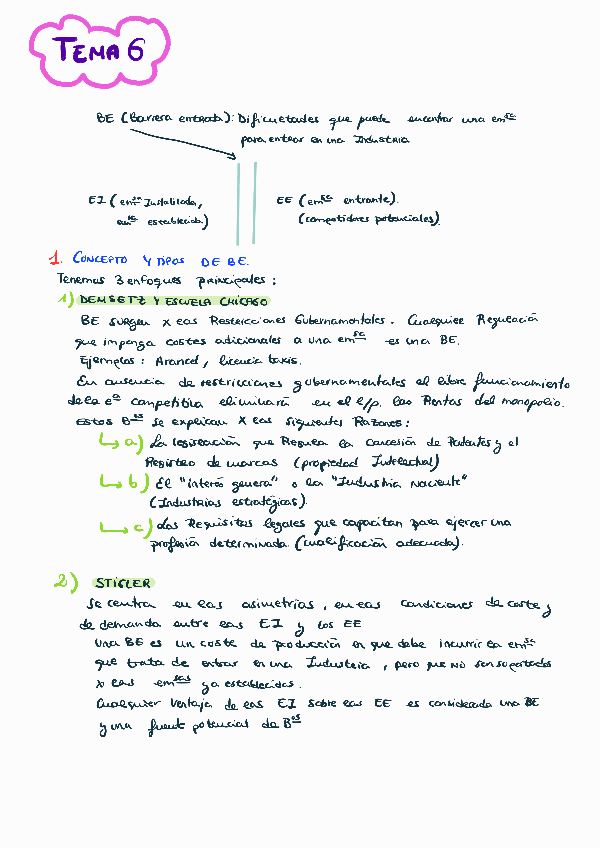 TEMA 6
BE (Barrera entrada): Dificultades que puede encontrar una emsa
para entrar en una Industria
EI (emsa Instalada,
emsa establecida)
EE (emsa entrante).
(competidores potenciales).
1. CONCEPTO Y TIPOS DE BE.
Tenemos 3 enfoques principales:
1) DEMSETZ Y ESCUELA CHICAGO
BE surgen x las Restricciones Gubernamentales. Cualquier Regulación
que imponga costes adicionales a una emsa es una BE.
Ejemplos: Arancel, licencia taxis.
En ausencia de restricciones gubernamentales el libre funcionamiento
de la ea competitiva eliminará en el l/p. las Rentas del monopolio.
Estos Bos se explican x las siguientes Razones:
↳ a) La legislación que Regula la concesión de Patentes y el
Registro de marcas (propiedad Intelectual)
↳ b) El "interés general" o la "Industria naciente"
(Industrias estratégicas).
↳ c) Los Requisitos legales que capacitan para ejercer una
profesión determinada. (cualificación adecuada).
2) STIGLER
Se centra en las asimetrías, en las condiciones de coste y
de demanda entre las EI y los EE
Una BE es un coste de producción en que debe incurrir la emsa
que trata de entrar en una Industria, pero que NO son soportados
x las emsas ya establecidas.
Cualquier ventaja de las EI sobre las EE es considerada una BE
y una fuente potencial de Bos